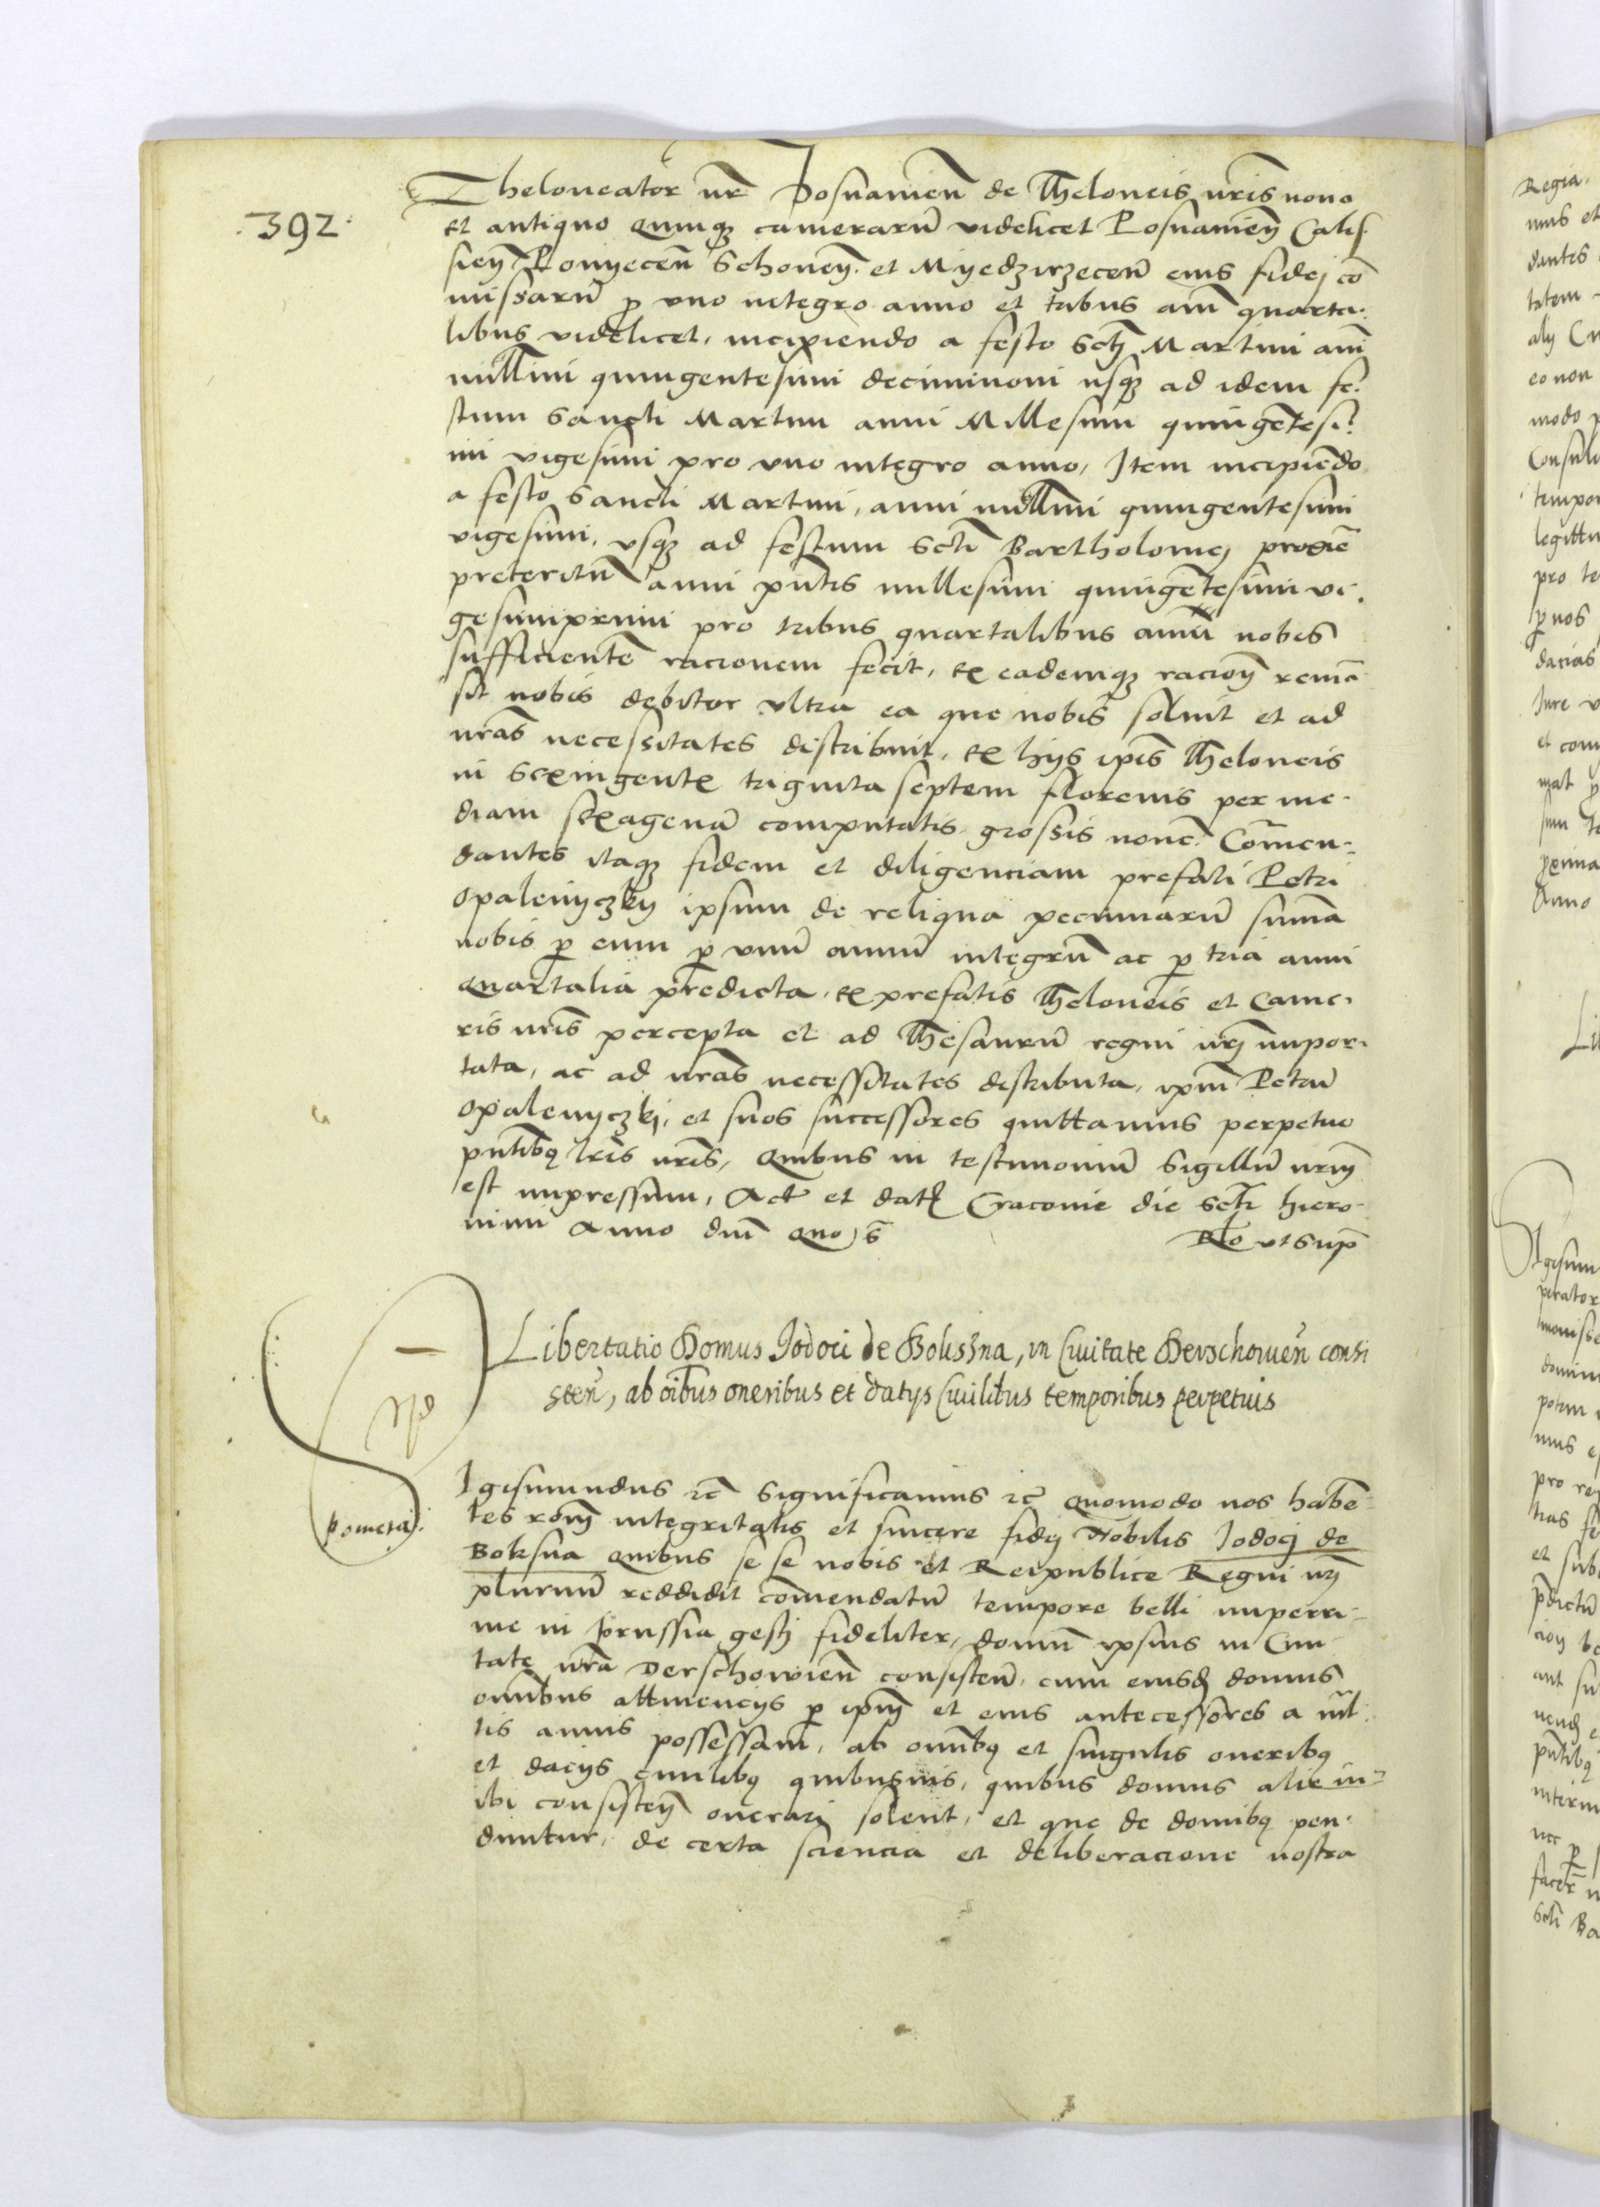 .392.
Theloneator nr̄ Posnanien̄ de Theloneis nr̄is nouo
et antiquo quinqȝ camerarū videlicet Posnanien̄ Calis
sien̄ Konyecen̄ Schouen̄. et Myedzirzecen̄ eius fidej cō
missarū p vno integro anno et tribus anni quarta.
libus videlicet, incipiendo a festo Sctj Martini anni
millīmi quingentesimi deciminoni usqȝ ad idem fe.
stum Sancti Martini anni Millesimi quingētesi.
mi vigesimi pro vno integro anno, Item incipiēdo
a festo Sancti Martini, anni millīmi quingentesimi
vigesimi, vsqȝ ad festum Scti Bartholomej proxie
preteritū anni pn̄tis millesimi quingētesimi vi.
gesimiprimi pro tribus quartalibus anni nobis
sufficientē racionem fecit, ex eademqȝ racion̄ remā
sit nobis debitor vltra ea que nobis soluit et ad
nr̄as necessitates distribuit, ex hijs ip̄is Theloneis
in sexingentē triginta septem florenis per me.
diam sexagenā computatis grossis none. Com̄en-
dantes itaqȝ fidem et diligenciam prefati Petri
Opalenyczky ipsum de reliqua pecuniarū summa
nobis p eum p vnū annū integrū ac p tria anni
quartalia predicta, ex prefatis Theloneis et Came.
ris nr̄is percepta et ad Thesaurū regni nr̄j impor.
tata, ac ad nr̄as necessitates distributa, ip̄m Petrū
Opalenyczkj, et suos successores quittamus perpetuo
pn̄tibȝ lr̄is nr̄is, Quibus in testimoniū Sigillū nr̄m
est impressum, Act̄ et dat̄ Cracouie die Scti Hiero-
nimi Anno dnī quo s̄ Rlō vt sup̄
Libertatio Domus Jodoci de Bolisszna, in Ciuitate Derschouien̄ consi
sten̄, ab oībus oneribus et datijs Ciuilibus temporibus perpetuis
Pomera.
Igismundus rc̄ Significamus rc̄ Quomodo nos habē-
tes rōm̄ integritatis et sincere fidej Nobilis Jodocj de
Boksna quibus se se nobis et Reipublice Regni nr̄j
plurimū reddidit com̄endatū tempore belli nuperri-
me in Prussia gestj fideliter, domū ipsius in Ciui
tate nr̄a Derschowien̄ consisten̄, cum eiusd̄ domus
omnibus attinencijs p ip̄m et eius antecessores a mul
tis annis possessam, ab omnibȝ et singulis oneribȝ
et dacijs ciuilibȝ quibusuis, quibus domus alie in-
ibi consisten̄ onerari solent, et que de domibȝ pen.
duntur, de certa sciencia et deliberacione nostra